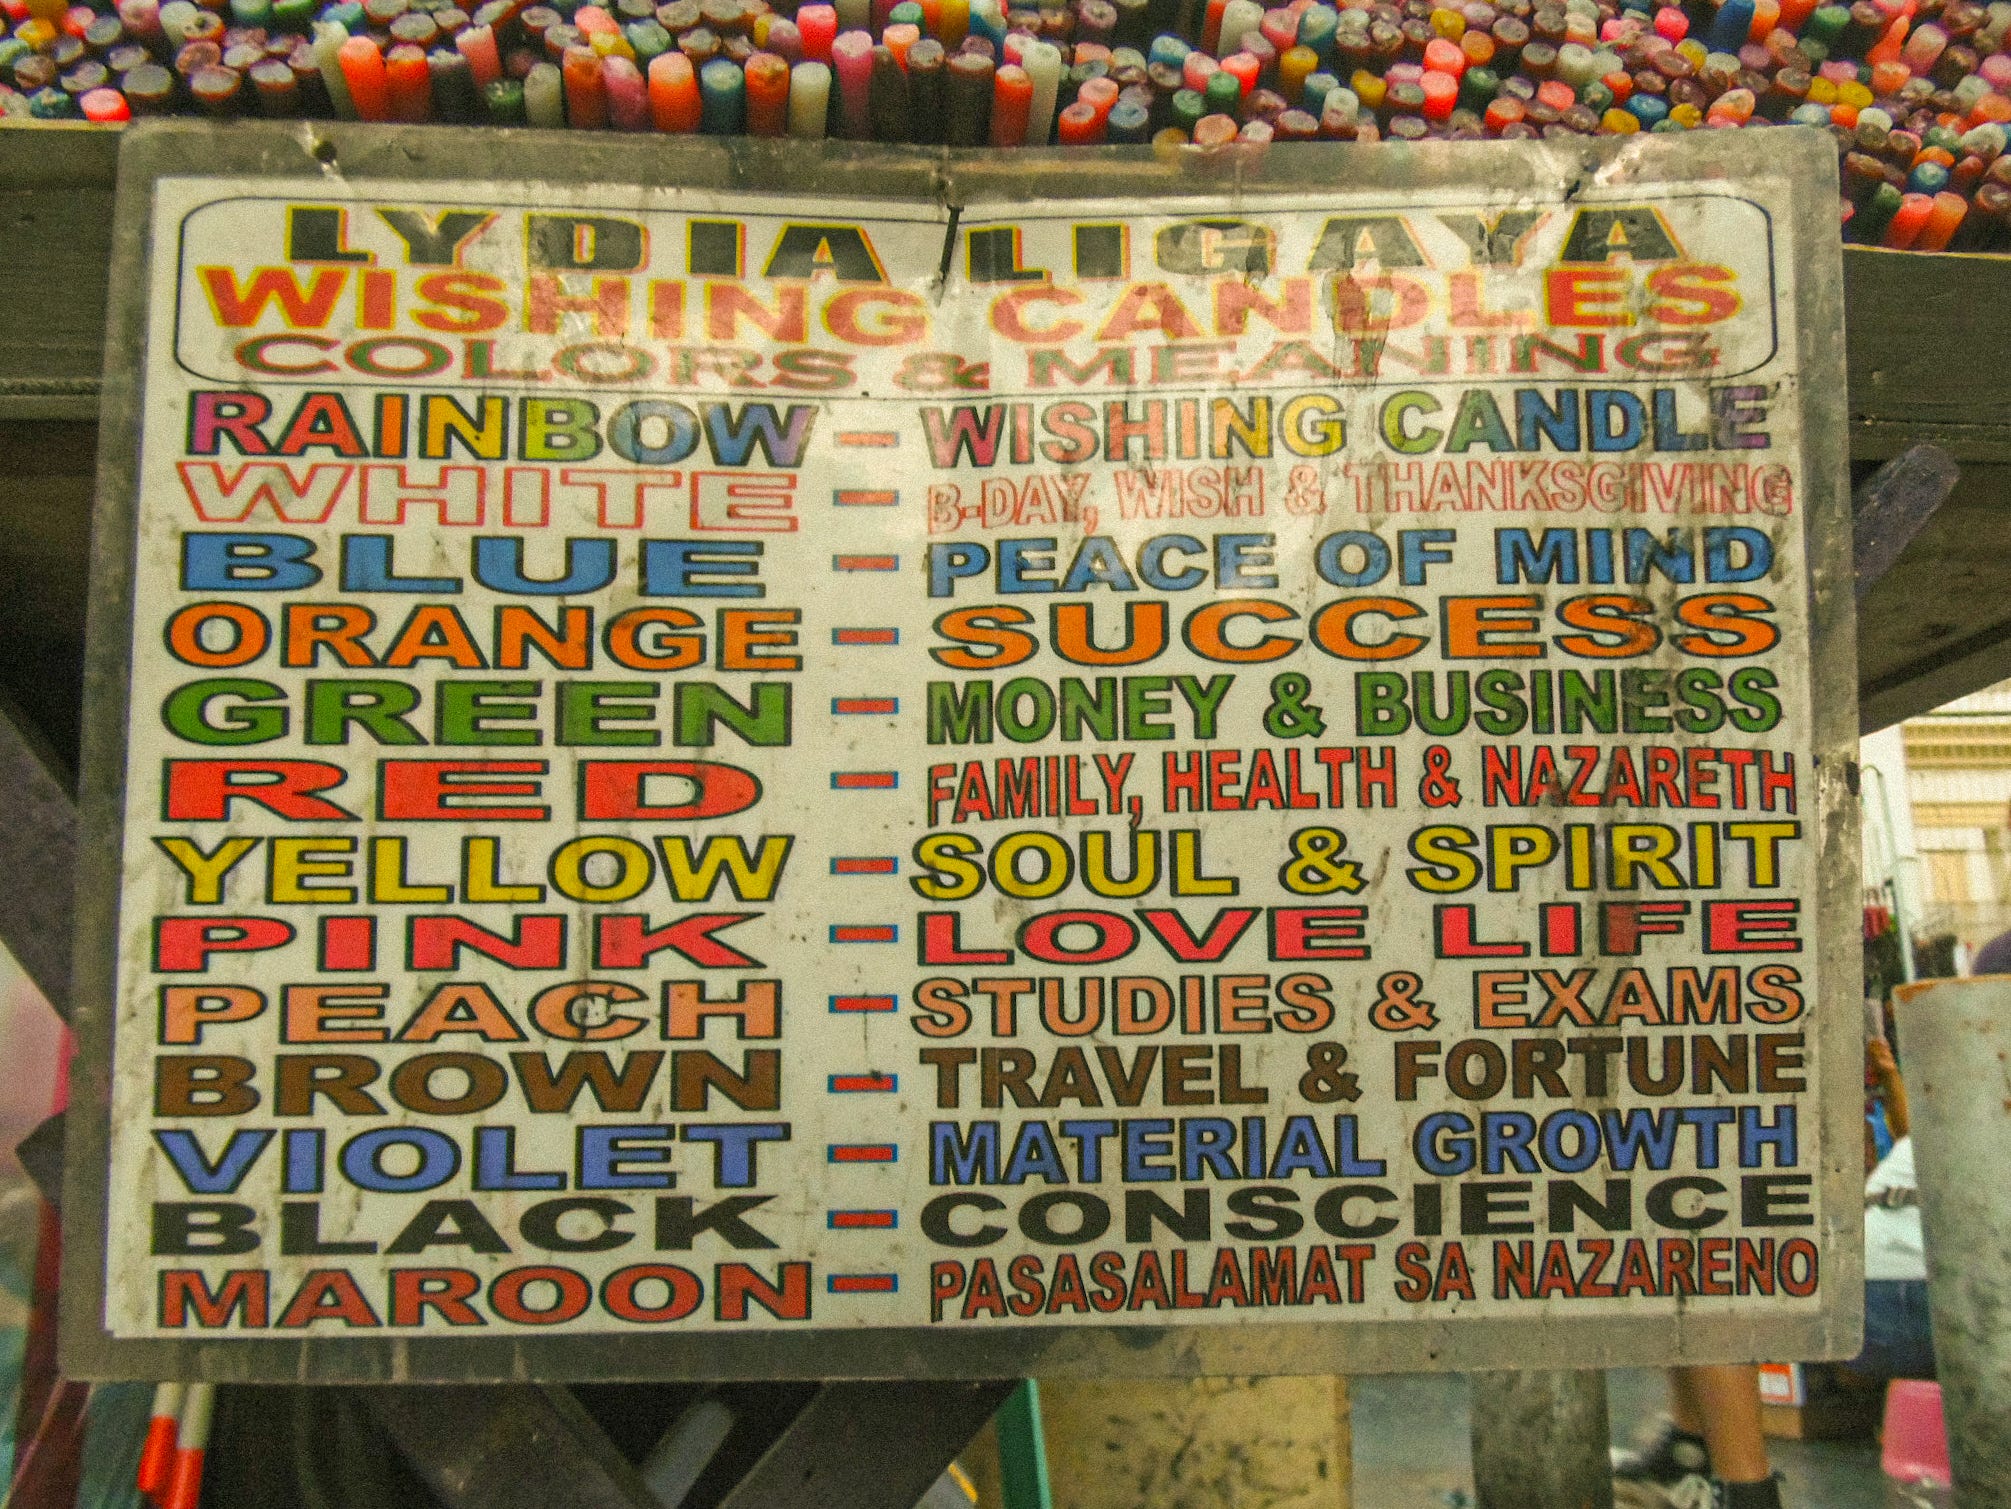 LYDIA LIGAYA
WISHING CANDLES
COLORS & MEANING
RAINBOW - WISHING CANDLE
WHITE - B-DAY, WISH & THANKSGIVING
BLUE - PEACE OF MIND
ORANGE - SUCCESS
GREEN - MONEY & BUSINESS
RED - FAMILY, HEALTH & NAZARETH
YELLOW - SOUL & SPIRIT
PINK - LOVE LIFE
PEACH - STUDIES & EXAMS
BROWN - TRAVEL & FORTUNE
VIOLET - MATERIAL GROWTH
BLACK - CONSCIENCE
MAROON - PASASALAMAT SA NAZARENO